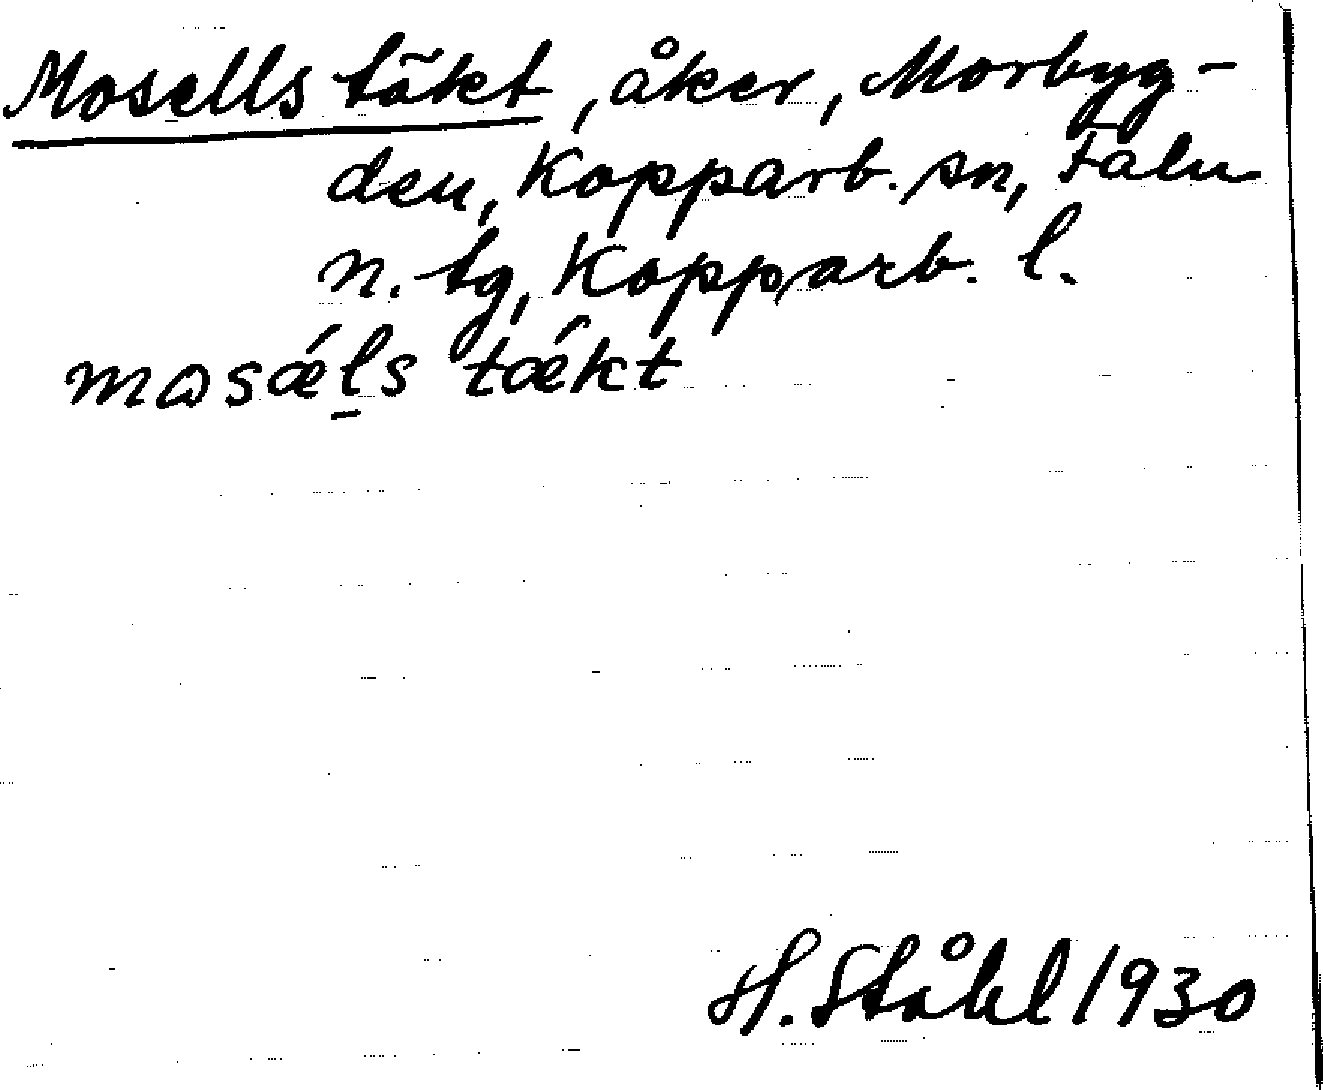 Mosells täkt, åker, Morbyg-
den, Kopparb. sn, Falu
n. tg, Kopparb. l.
mɷsǽl̠s tǽkt
H. Ståhl 1930